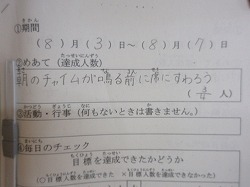 ①期間
(8)月(3)日〜(8)月(7)日
②めあて(達成人数)
朝のチャイムが鳴る前に席にすわろう
人)
③活動・行事(何もないときは書きません。)
④毎日のチェック
目標を達成できたかどうか
(○目標を達成できた ×目標を達成できなかった)